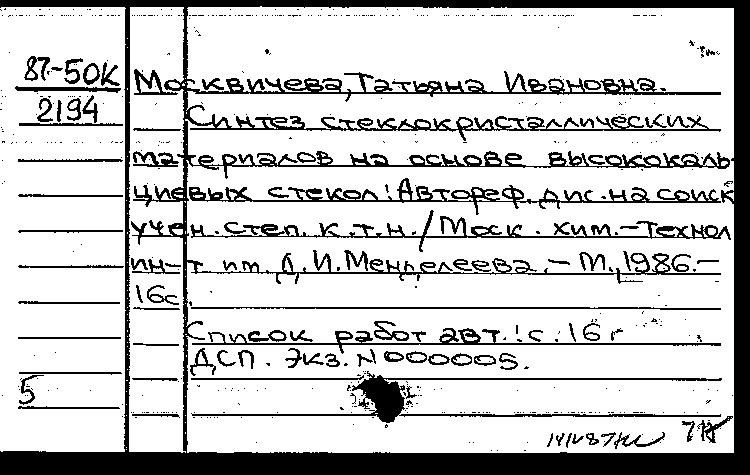 87-50К Москвичева, Татьяна Ивановна.
2194 Синтез стеклокристаллических
материалов на основе высококаль-
циевых стекол: Автореф. дис. на соиск
учен. степ. к.т.н. / Моск. хим.-технол
ин-т им. Д. И. Менделеева. - М., 1986. -
16с.
Список работ авт.: с. 16
ДСП. Экз. N000005.
5